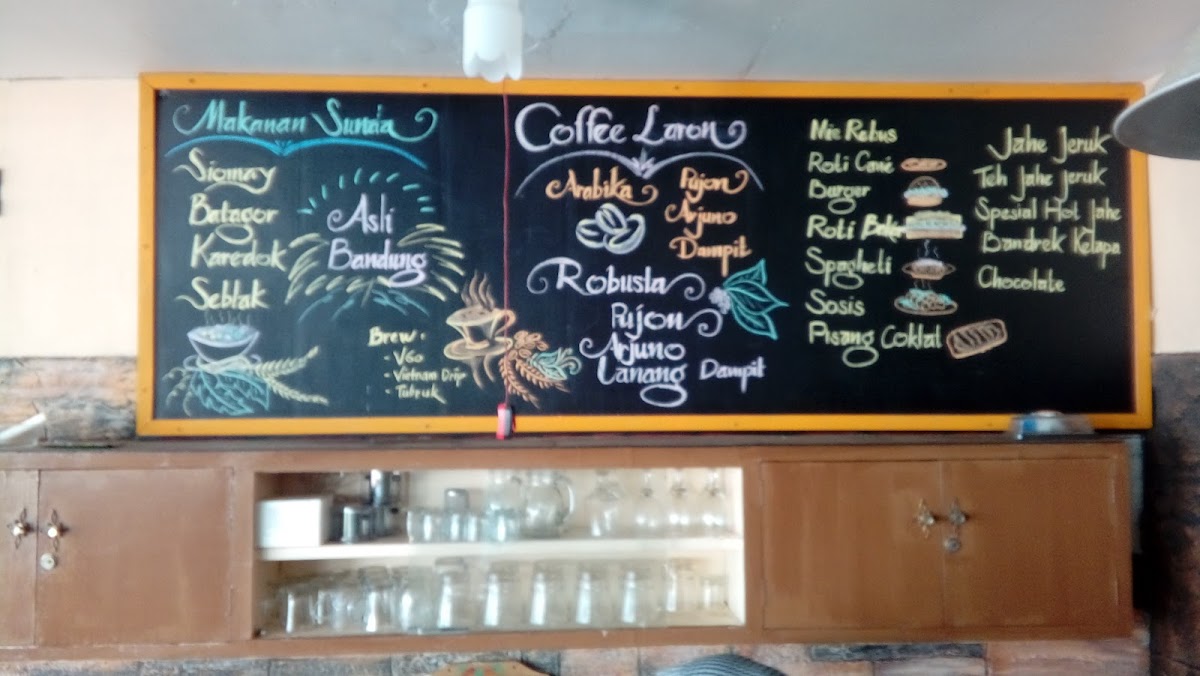 Makanan Sunda
Siomay
Batagor
Karedok
Seblak
Asli
Bandung
Brew :
- V60
- Vietnam Drip
- Tubruk
Coffee Laron
Arabika
Pujon
Arjuno
Dampit
Robusta
Pujon
Arjuno
Lanang
Dampit
Mie Rebus
Roti Cane
Burger
Roti Bakar
Spagheti
Sosis
Pisang Coklat
Jahe Jeruk
Teh Jahe Jeruk
Spesial Hot Jahe
Bandrek Kelapa
Chocolate